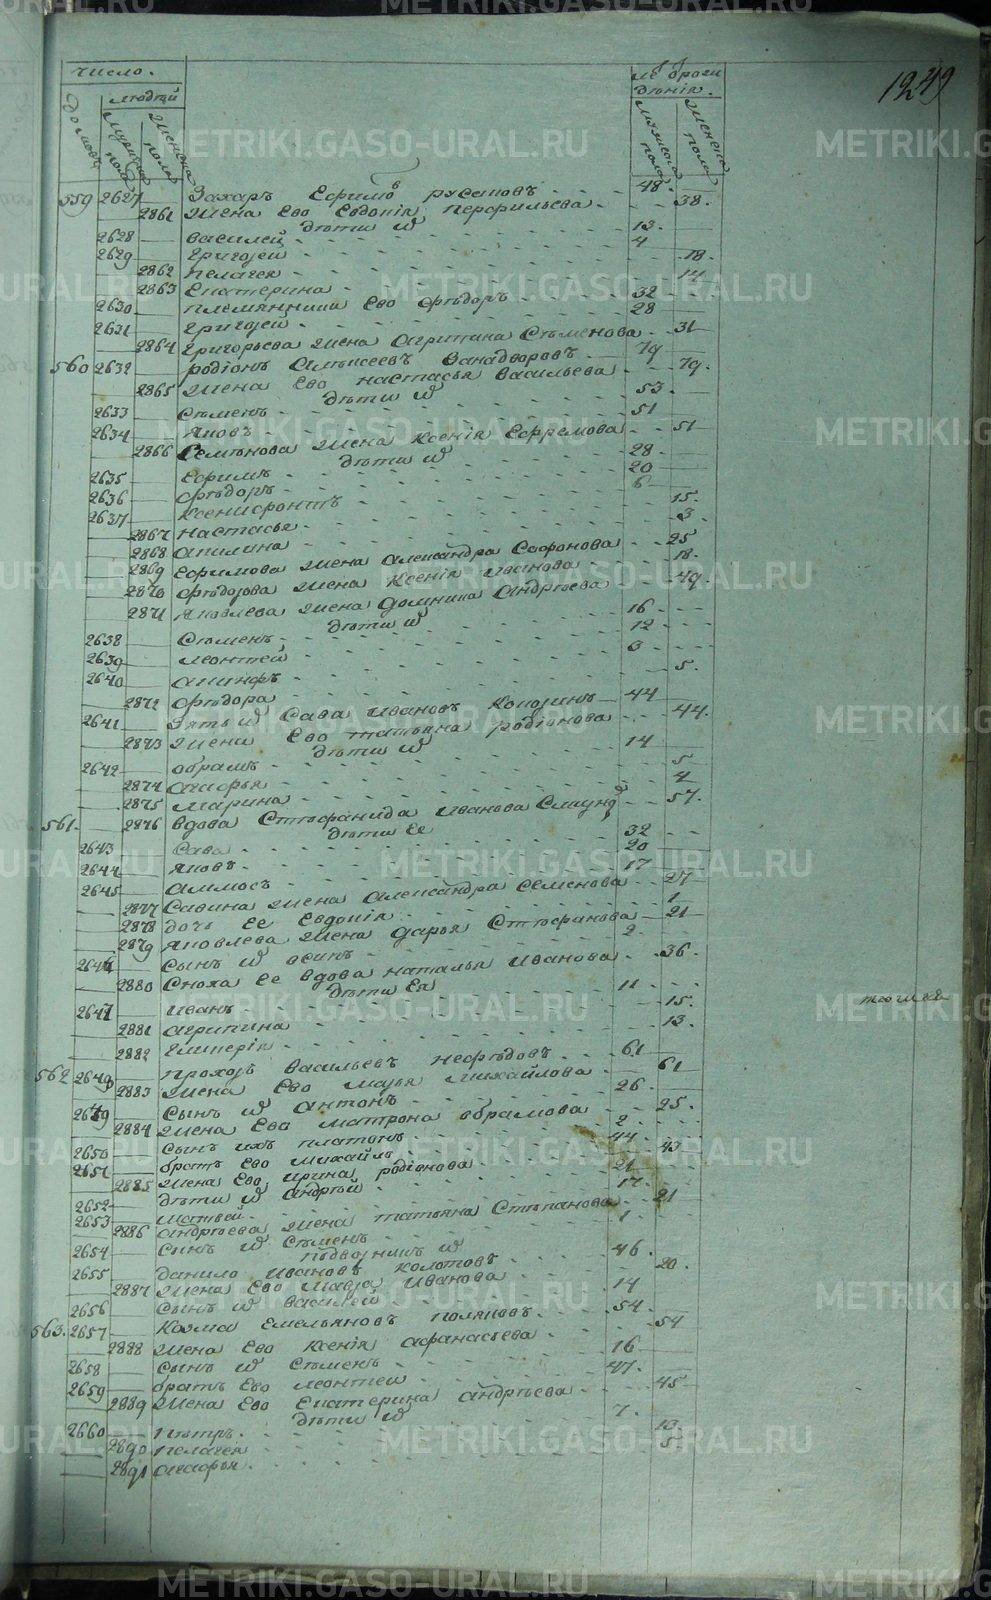 METRIKI.GASO-URAL.RU
1249
число.
людей
домовъ
мужеска пола
женска пола
лѣ
дѣнiя.
мужеска пола
женска пола
559 2627 Захаръ Ефимовъ 48.
2861 жена Ево Евдокiя Перфильева 38.
дѣти и͠
2628 василей 13.
2629 григорей 4
2862 пелагея 18.
2863 Екатерина 14
2630 племянники Ево Ѳѣдоръ 32
2631 григорей 28
2864 григорьева жена агрипина Сѣменова 31
560 2632 родiонъ алѣксеевъ 79
2865 жена Ево настасья васильева 79.
дѣти и͠
2633 Сѣменъ 53.
2634 яковъ 51
2866 Семѣнова жена Ксенiя Ефремова 51
дѣти и͠
2635 Ефимъ 28
2636 Ѳѣдоръ 20
2637 Ксенифонтъ 6
2867 настасья 15.
2868 акилина 3.
2869 Ефимова жена александра Сафонова 25
2870 Ѳѣдорова жена Ксенiя иванова 18.
2871 яковлева жена домника андрѣева 49.
дѣти и͠
2638 Сѣменъ 16
2639 леонтей 12
2640 акинфъ 3
2872 Ѳѣдора 5.
2641 зять и͠ Сава ивановъ 44
2873 жена Ево татьяна родiонова 44.
дѣти и͠
2642 абрамъ 14
2874 агафья 5
2875 марина 4
561. 2876 вдова Стѣфанида иванова 57.
дѣти Ее
2643 Сава 32
2644 яковъ 20
2645 аммосъ 17
2877 Савина жена александра Семенова 27
2878 дочь Ее Евдокiя 1
2879 яковлева жена дарья Стѣфанова 21
2646 Сынъ и͠ осипъ 2.
2880 Сноха Ее вдова наталья иванова 36.
дѣти Ея
2647 иванъ 11
2881 агрипина 15.
2882 Гликерiя 13.
562 2648 прохоръ васильевъ нефѣдовъ 61
2883 жена Ево марья михайлова 61
2649 Сынъ и͠ антонъ 26
2884 жена Ево матрона абрамова 25.
2650 Сынъ ихъ платонъ 2
2651 братъ Ево михайлъ 44
2885 жена Ево ирина родiонова 43
2652 дѣти и͠ андрѣй 21
2653 матвей 17.
2886 андрѣева жена татьяна Стѣпанова 21
2654 Сынъ и͠ Сѣменъ 1
подворникъ и͠
2655 данило ивановъ колотовъ 46.
2887 жена Ево мавра иванова 20.
2656 Сынъ и͠ василей 14
563. 2657 Козма Емельяновъ поляковъ 54.
2888 жена Ево Ксенiя афанасьева 54
2658 Сынъ и͠ Сѣменъ 16
2659 братъ Ево леонтей 47.
2889 жена Ево Екатерина андрѣева 45
дѣти и͠
2660 пѣтръ 7.
2890 пелагея 13
2891 агафья 5